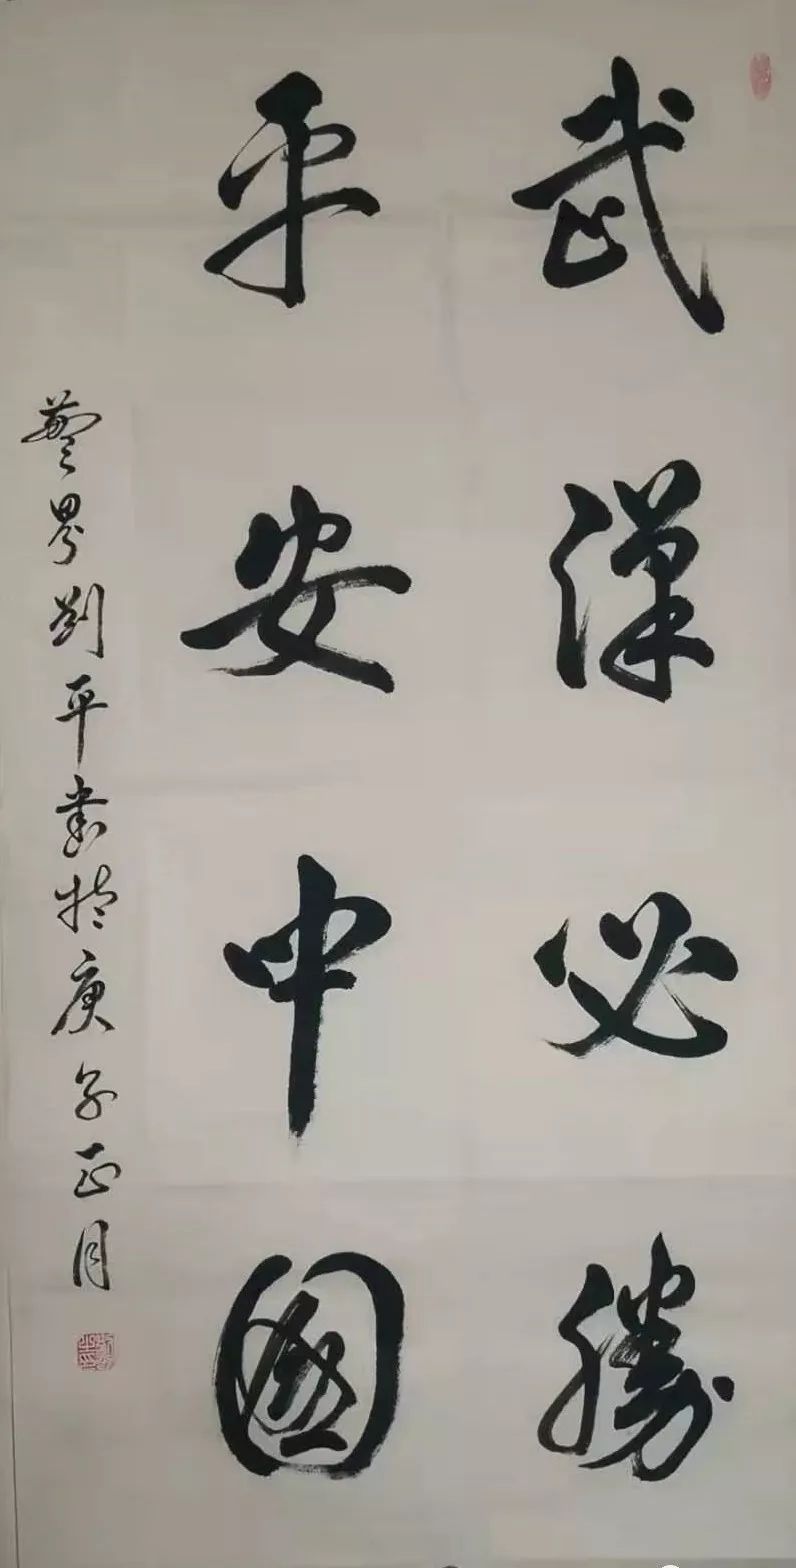 武漢必勝
平安中國
警界刘平書於庚子正月